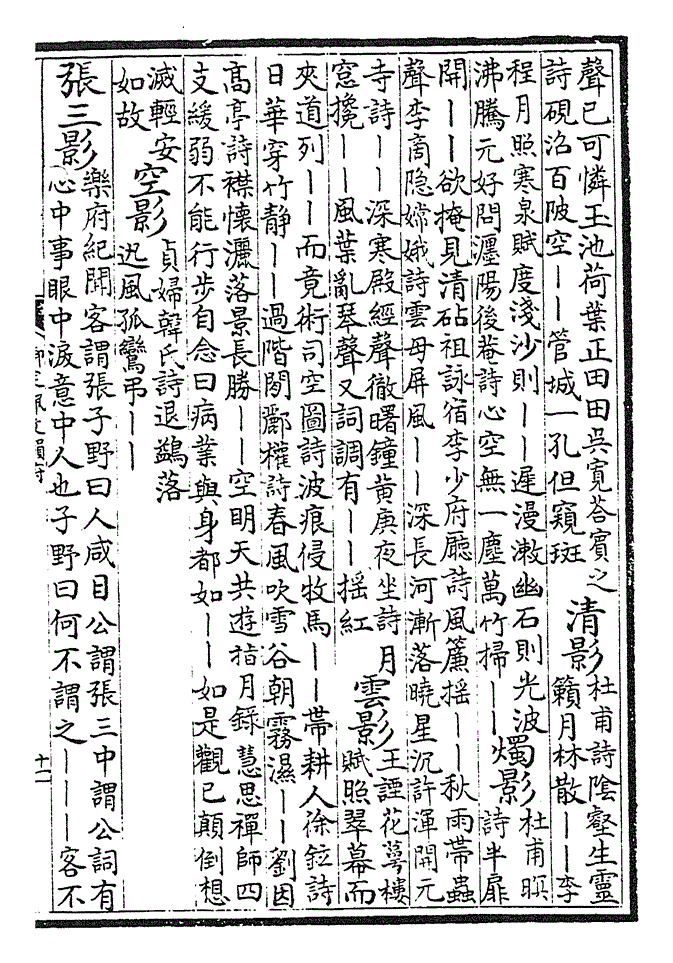 聲已可憐玉池荷葉正田田吳寬荅賓之
詩硯滔百陂空丨丨管城一孔但窺斑
清影
杜甫詩陰壑生靈
籟月林散丨丨李
程月照寒泉賦度淺沙則丨丨遲漫漱幽石則光波
沸騰元好問瀍陽後菴詩心空無一塵萬竹掃丨丨
燭影
杜甫暝
詩半扉
開丨丨欲掩見清砧祖詠宿李少府廳詩風簾搖丨丨秋雨帶蟲
聲李商隐嫦娥詩雲母屏風丨丨深長河漸落曉星沉許渾開元
寺詩丨丨深寒殿經聲徹曙鐘黃庚夜坐詩月
窓攙丨丨風葉亂琴聲又詞調有丨丨揺紅
雲影
王諲花萼樓
賦照翠幕而
夾道列丨丨而竟術司空圖詩波痕侵牧馬丨丨帶耕人徐鉉詩
日華穿竹靜丨丨過階閒酈權詩春風吹雪谷朝霧濕丨丨劉因
高亭詩襟懷灑落景長勝丨丨空明天共遊指月錄慧思禪師四
支緩弱不能行步自念曰病業與身都如丨丨如是觀已顛倒想
滅輕安
如故
空影
貞婦韓氏詩退鷁落
迅風孤鸞弔丨丨
張三影
樂府紀聞客謂張子野曰人咸目公謂張三中謂公詞有
心中事眼中淚意中人也子野曰何不謂之丨丨丨客不
十二